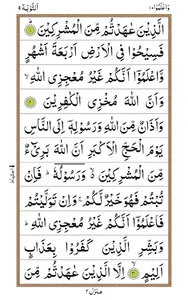 وَاعْلَمُوْٓا ١٠ اَلتَّوْبَة ٩
الَّذِيْنَ عٰهَدْتُّمْ مِّنَ الْمُشْرِكِيْنَ ۝١
فَسِيْحُوْا فِي الْاَرْضِ اَرْبَعَةَ اَشْهُرٍ
وَّاعْلَمُوْٓا اَنَّكُمْ غَيْرُ مُعْجِزِي اللّٰهِ ۙ
وَاَنَّ اللّٰهَ مُخْزِي الْكٰفِرِيْنَ ۝٢
وَاَذَانٌ مِّنَ اللّٰهِ وَرَسُوْلِهٖٓ اِلَى النَّاسِ
يَوْمَ الْحَجِّ الْاَكْبَرِ اَنَّ اللّٰهَ بَرِيْٓءٌ
مِّنَ الْمُشْرِكِيْنَ ۙ وَرَسُوْلُهٗ ؕ فَاِنْ
تُبْتُمْ فَهُوَ خَيْرٌ لَّكُمْ ۚ وَاِنْ تَوَلَّيْتُمْ
فَاعْلَمُوْٓا اَنَّكُمْ غَيْرُ مُعْجِزِي اللّٰهِ ؕ
وَبَشِّرِ الَّذِيْنَ كَفَرُوْا بِعَذَابٍ
اَلِيْمٍ ۝٣ اِلَّا الَّذِيْنَ عٰهَدْتُّمْ مِّنَ
منزل ٢